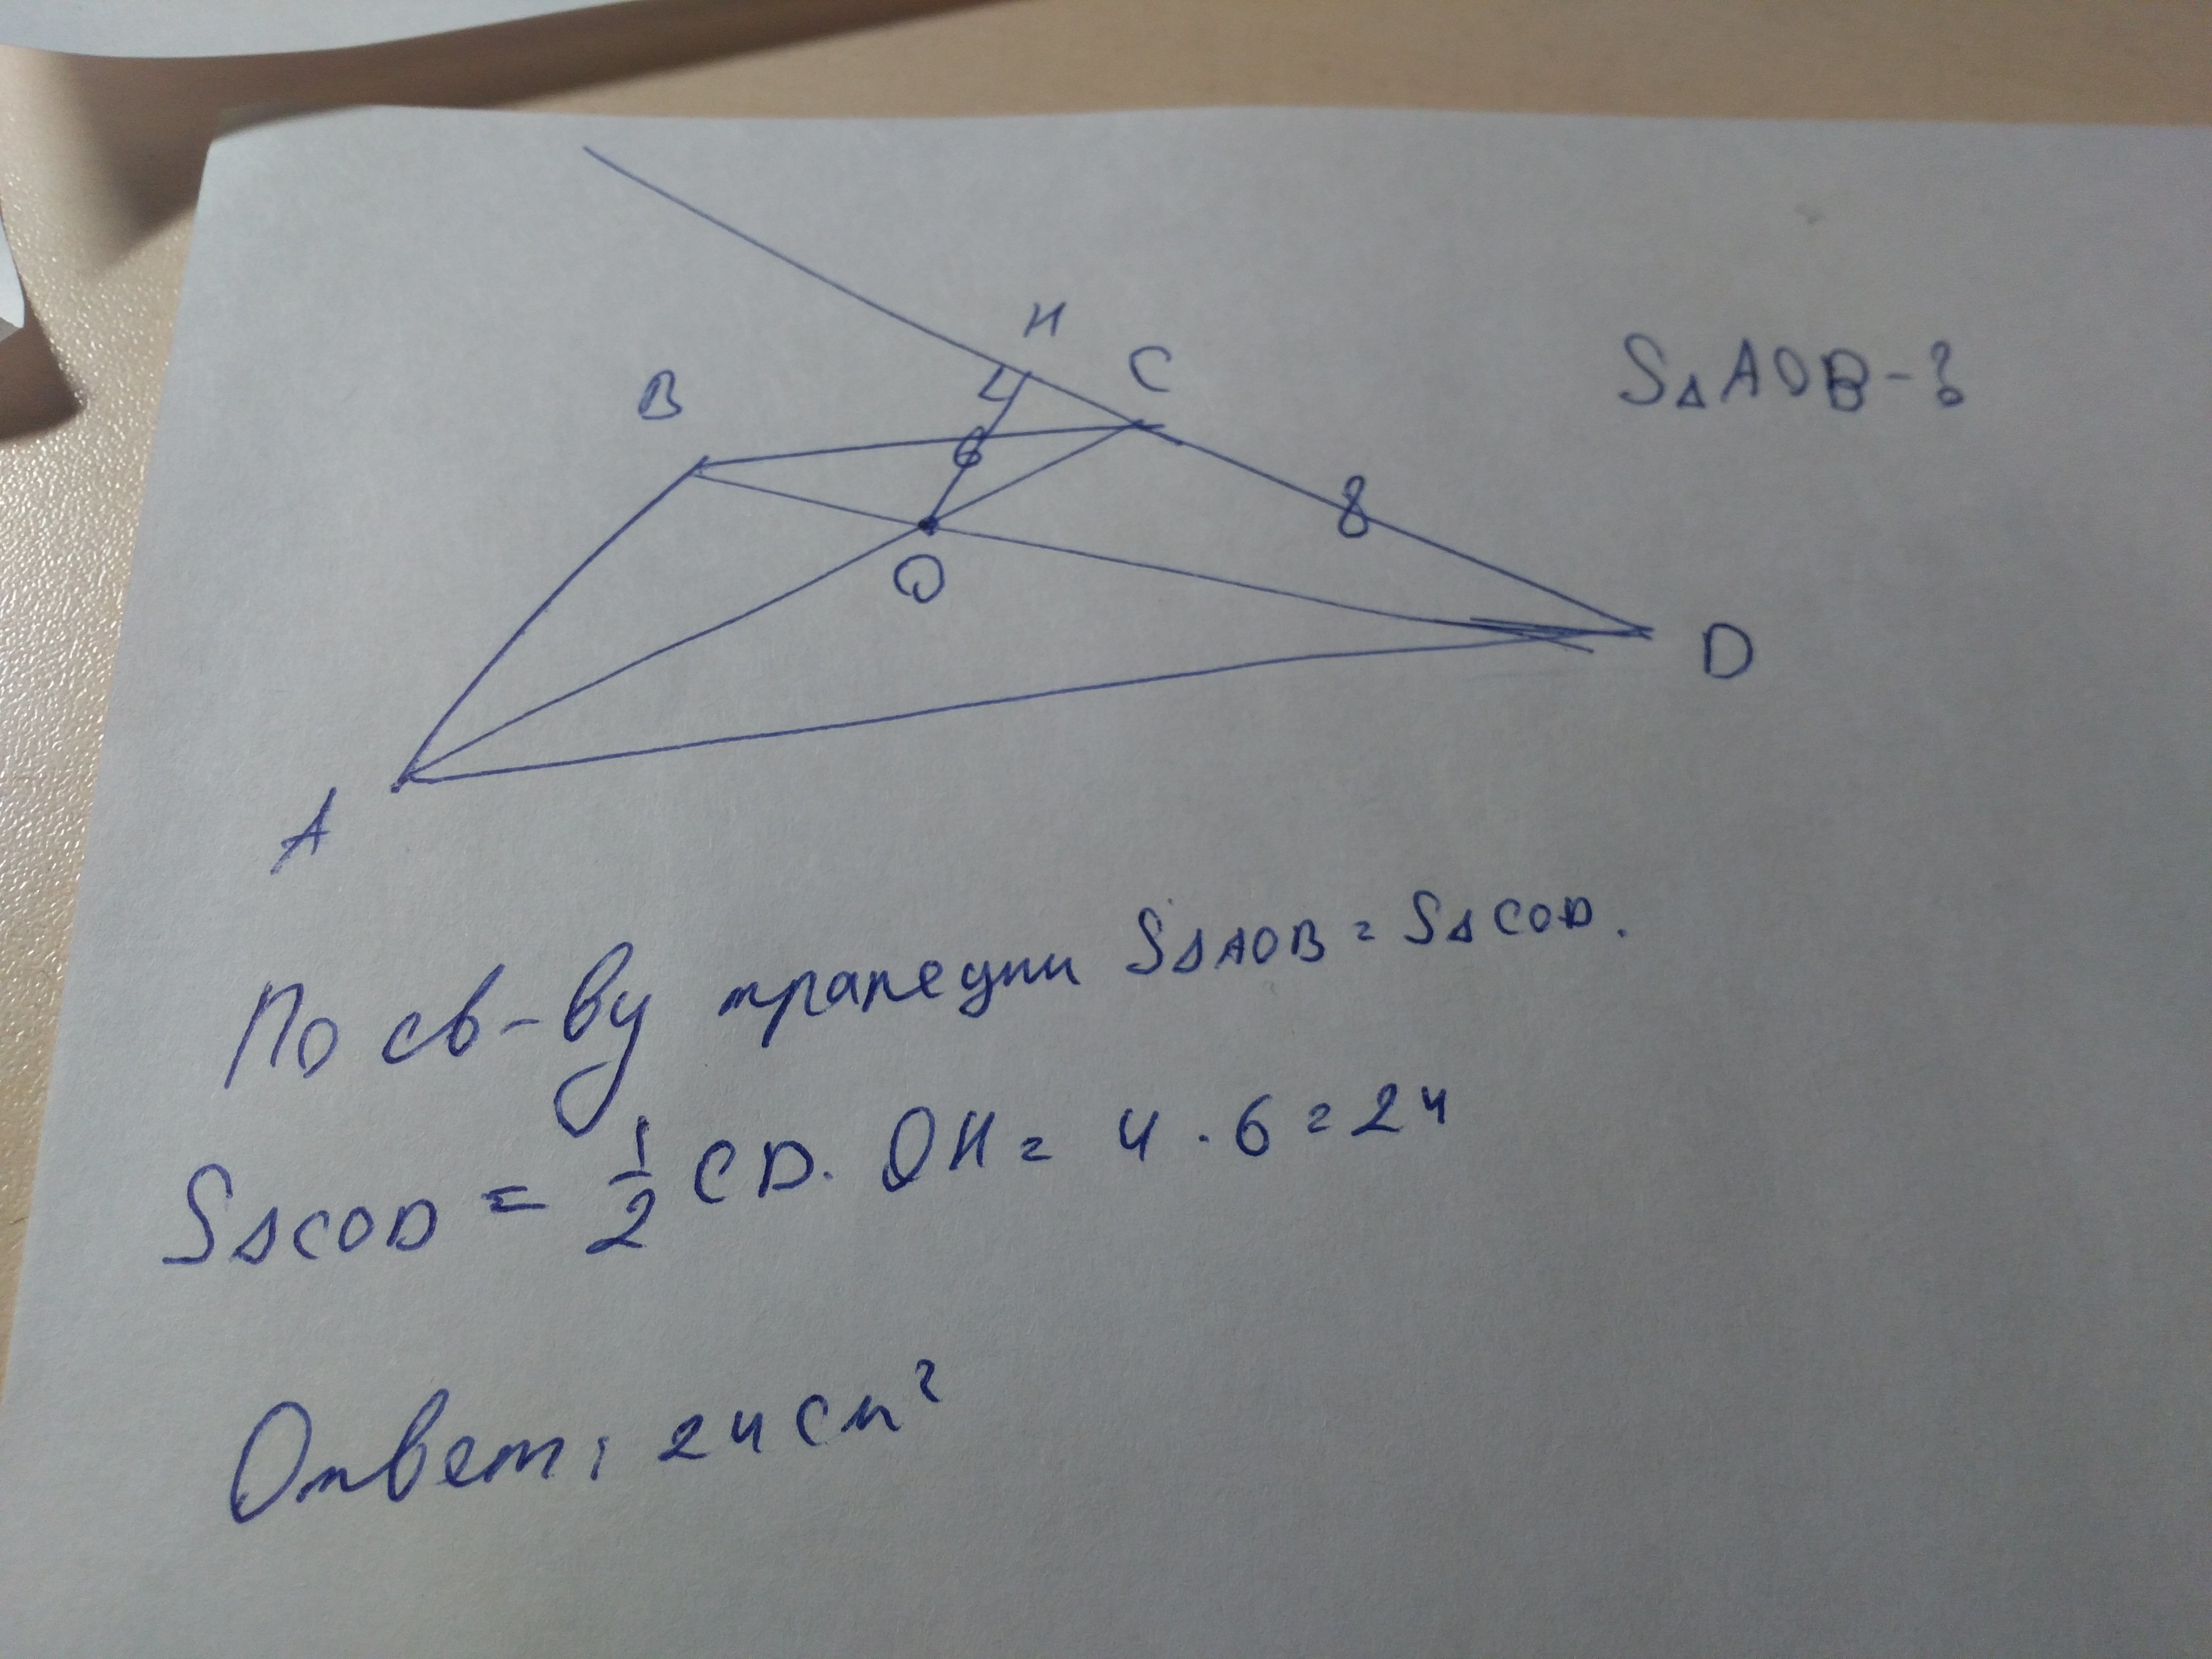 H
C
B
S△AOB-?
6
8
O
D
A
По св-ву трапеции S△AOB = S△COD.
S△COD = 1/2 CD · OH = 4 · 6 = 24
Ответ: 24 см²